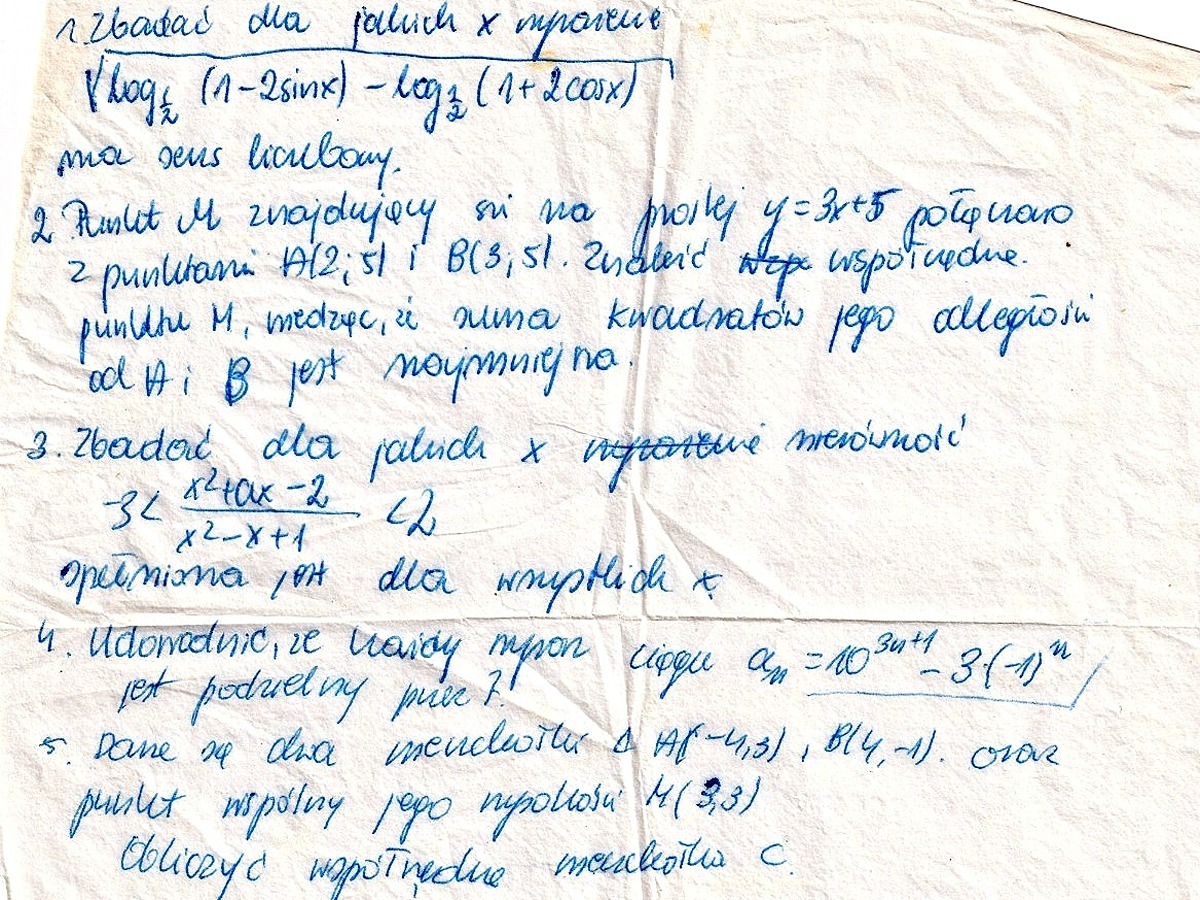 1. Zbadać dla jakich x wyrażenie
√log½ (1-2sinx) - log½ (1+2cosx)
ma sens liczbowy.
2 Punkt M znajdujący się na prostej y=3x+5 połączono
z punktami A(2;5) i B(3;5). Znaleźć współrzędne.
punktu M, wiedząc, że suma kwadratów jego odległości
od A i B jest najmniejsza.
3. Zbadać dla jakich x wyrażenie nierówność
-3< (x²+ax-2)/(x²-x+1) <2
spełniona jest dla wszystkich x.
4. Udowodnić, że każdy wyraz ciągu aₙ = 10³ⁿ⁺¹ - 3·(-1)ⁿ
jest podzielny przez 7.
5. Dane są dwa wierzchołki Δ A(-4,3), B(4,-1). oraz
punkt wspólny jego wysokości M(3,3)
Obliczyć współrzędne wierzchołka C.